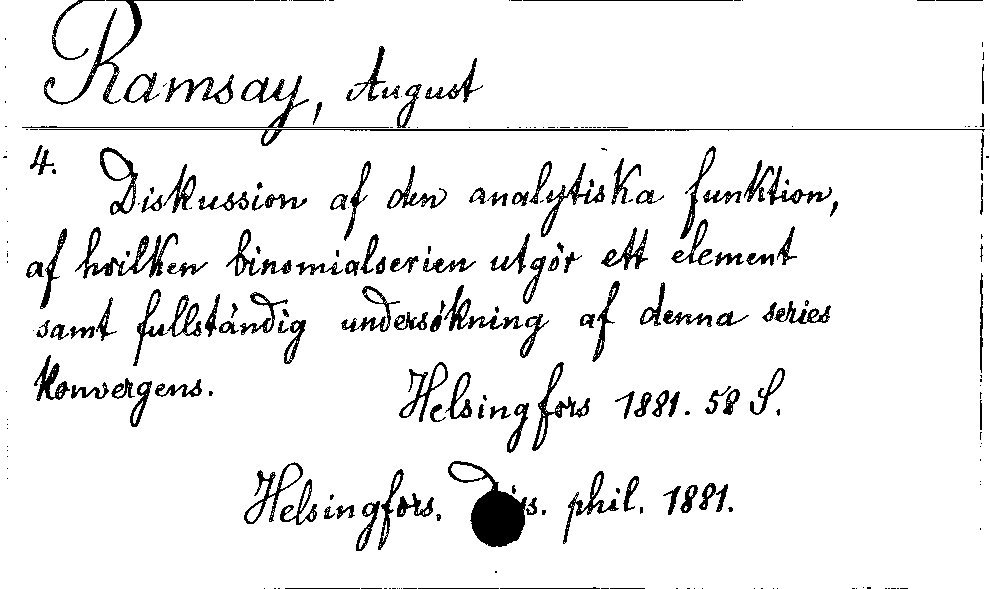 Ramsay, August
4.
Diskussion af den analytiska funktion,
af hvilken binomialserien utgör ett element
samt fullständig undersökning af denna series
konvergens.
Helsingfors 1881. 58 S.
Helsingfors. Diss. phil. 1881.